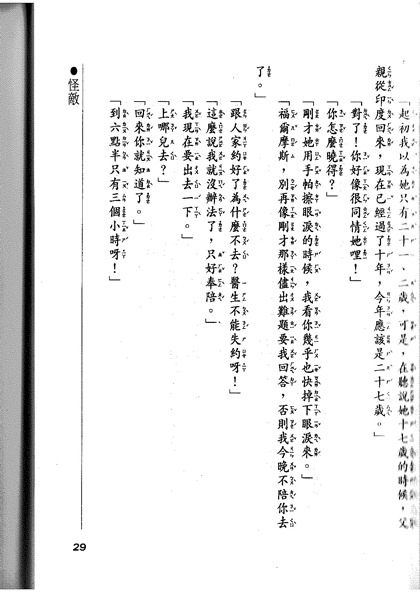 「起初我以為她只有二十一、二歲，可是，在聽說她十七歲的時候，父
親從印度回來，現在已經過了十年，今年應該是二十七歲。」
「對了！你好像很同情她哩！」
「你怎麼曉得？」
「剛才她用手帕擦眼淚的時候，我看你幾乎也快掉下眼淚來。」
「福爾摩斯，別再像剛才那樣儘出難題要我回答，否則我今晚不陪你去
了。」
「跟人家約好了為什麼不去？醫生不能失約呀！」
「這麼說我就沒辦法了，只好奉陪。」
「我現在要出去一下。」
「上哪兒去？」
「回來你就知道了。」
「到六點半只有三個小時呀！」
●怪敵
29